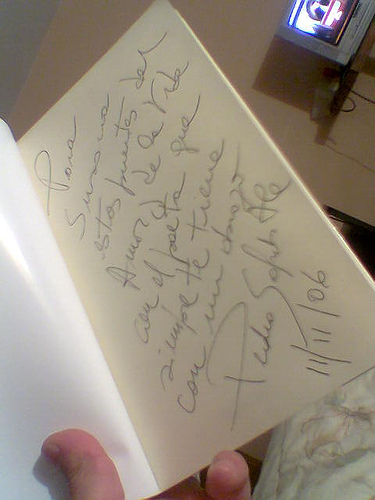 Para
Susana
estos puentes del
Amor y de la Vida
con el poeta que
siempre te tiene
con un abrazo
Pedro
11/11/06